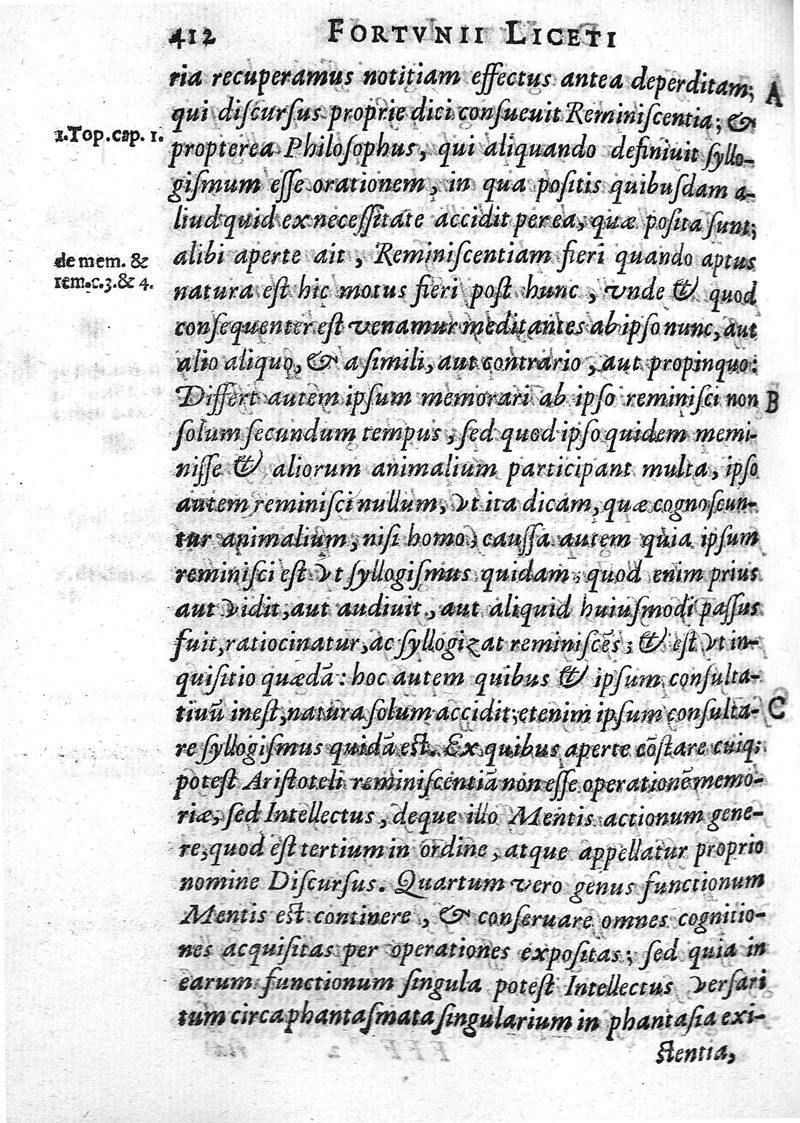 412 FORTVNII LICETI
ria recuperamus notitiam effectus antea deperditam; A
qui diſcurſus proprie dici conſueuit Reminiſcentia; &
1.Top.cap. 1.
propterea Philoſophus, qui aliquando definiuit ſyllo-
giſmum eſſe orationem, in qua poſitis quibuſdam a-
liud quid ex neceſſitate accidit per ea, quæ poſita ſunt;
alibi aperte ait, Reminiſcentiam fieri quando aptus
de mem. &
rem.c.3.& 4.
natura eſt hic motus fieri poſt hunc, vnde & quod
conſequenter eſt venamur meditantes ab ipſo nunc, aut
alio aliquo, & a ſimili, aut contrario, aut propinquo:
Differt autem ipſum memorari ab ipſo reminiſci non B
ſolum ſecundum tempus, ſed quod ipſo quidem memi-
niſſe & aliorum animalium participant multa, ipſo
autem reminiſci nullum, vt ita dicam, quæ cognoſcun-
tur animalium, niſi homo; cauſſa autem quia ipſum
reminiſci eſt vt ſyllogiſmus quidam; quod enim prius
aut vidit, aut audiuit, aut aliquid huiuſmodi paſſus
fuit, ratiocinatur, ac ſyllogizat reminiſcēs; & eſt vt in-
quiſitio quædā: hoc autem quibus & ipſum conſulta-
tiuū ineſt, natura ſolum accidit; etenim ipſum conſulta- C
re ſyllogiſmus quidā eſt. Ex quibus aperte cōſtare cuiq;
poteſt Ariſtoteli reminiſcentiā non eſſe operationē memo-
riæ, ſed Intellectus, deque illo Mentis actionum gene-
re, quod eſt tertium in ordine, atque appellatur proprio
nomine Diſcurſus. Quartum vero genus functionum
Mentis eſt continere, & conſeruare omnes cognitio-
nes acquiſitas per operationes expoſitas; ſed quia in
earum functionum ſingula poteſt Intellectus verſari
tum circa phantaſmata ſingularium in phantaſia exi-
ſtentia,